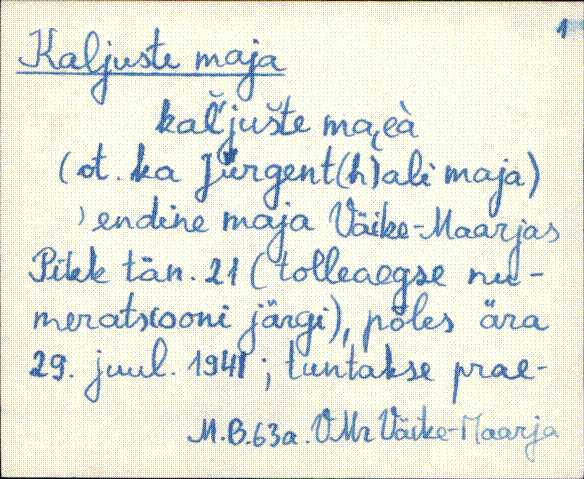 1
Kaljuste maja
kaľjušte ma͔eà
(ot. ka Jürgent(h)ali maja)
) endine maja Väike-Maarjas
Pikk tän. 21 (tolleaegse nu-
meratsiooni järgi), põles ära
29. juul. 1941; tuntakse prae-
M.B.63a. VMr Väike-Maarja